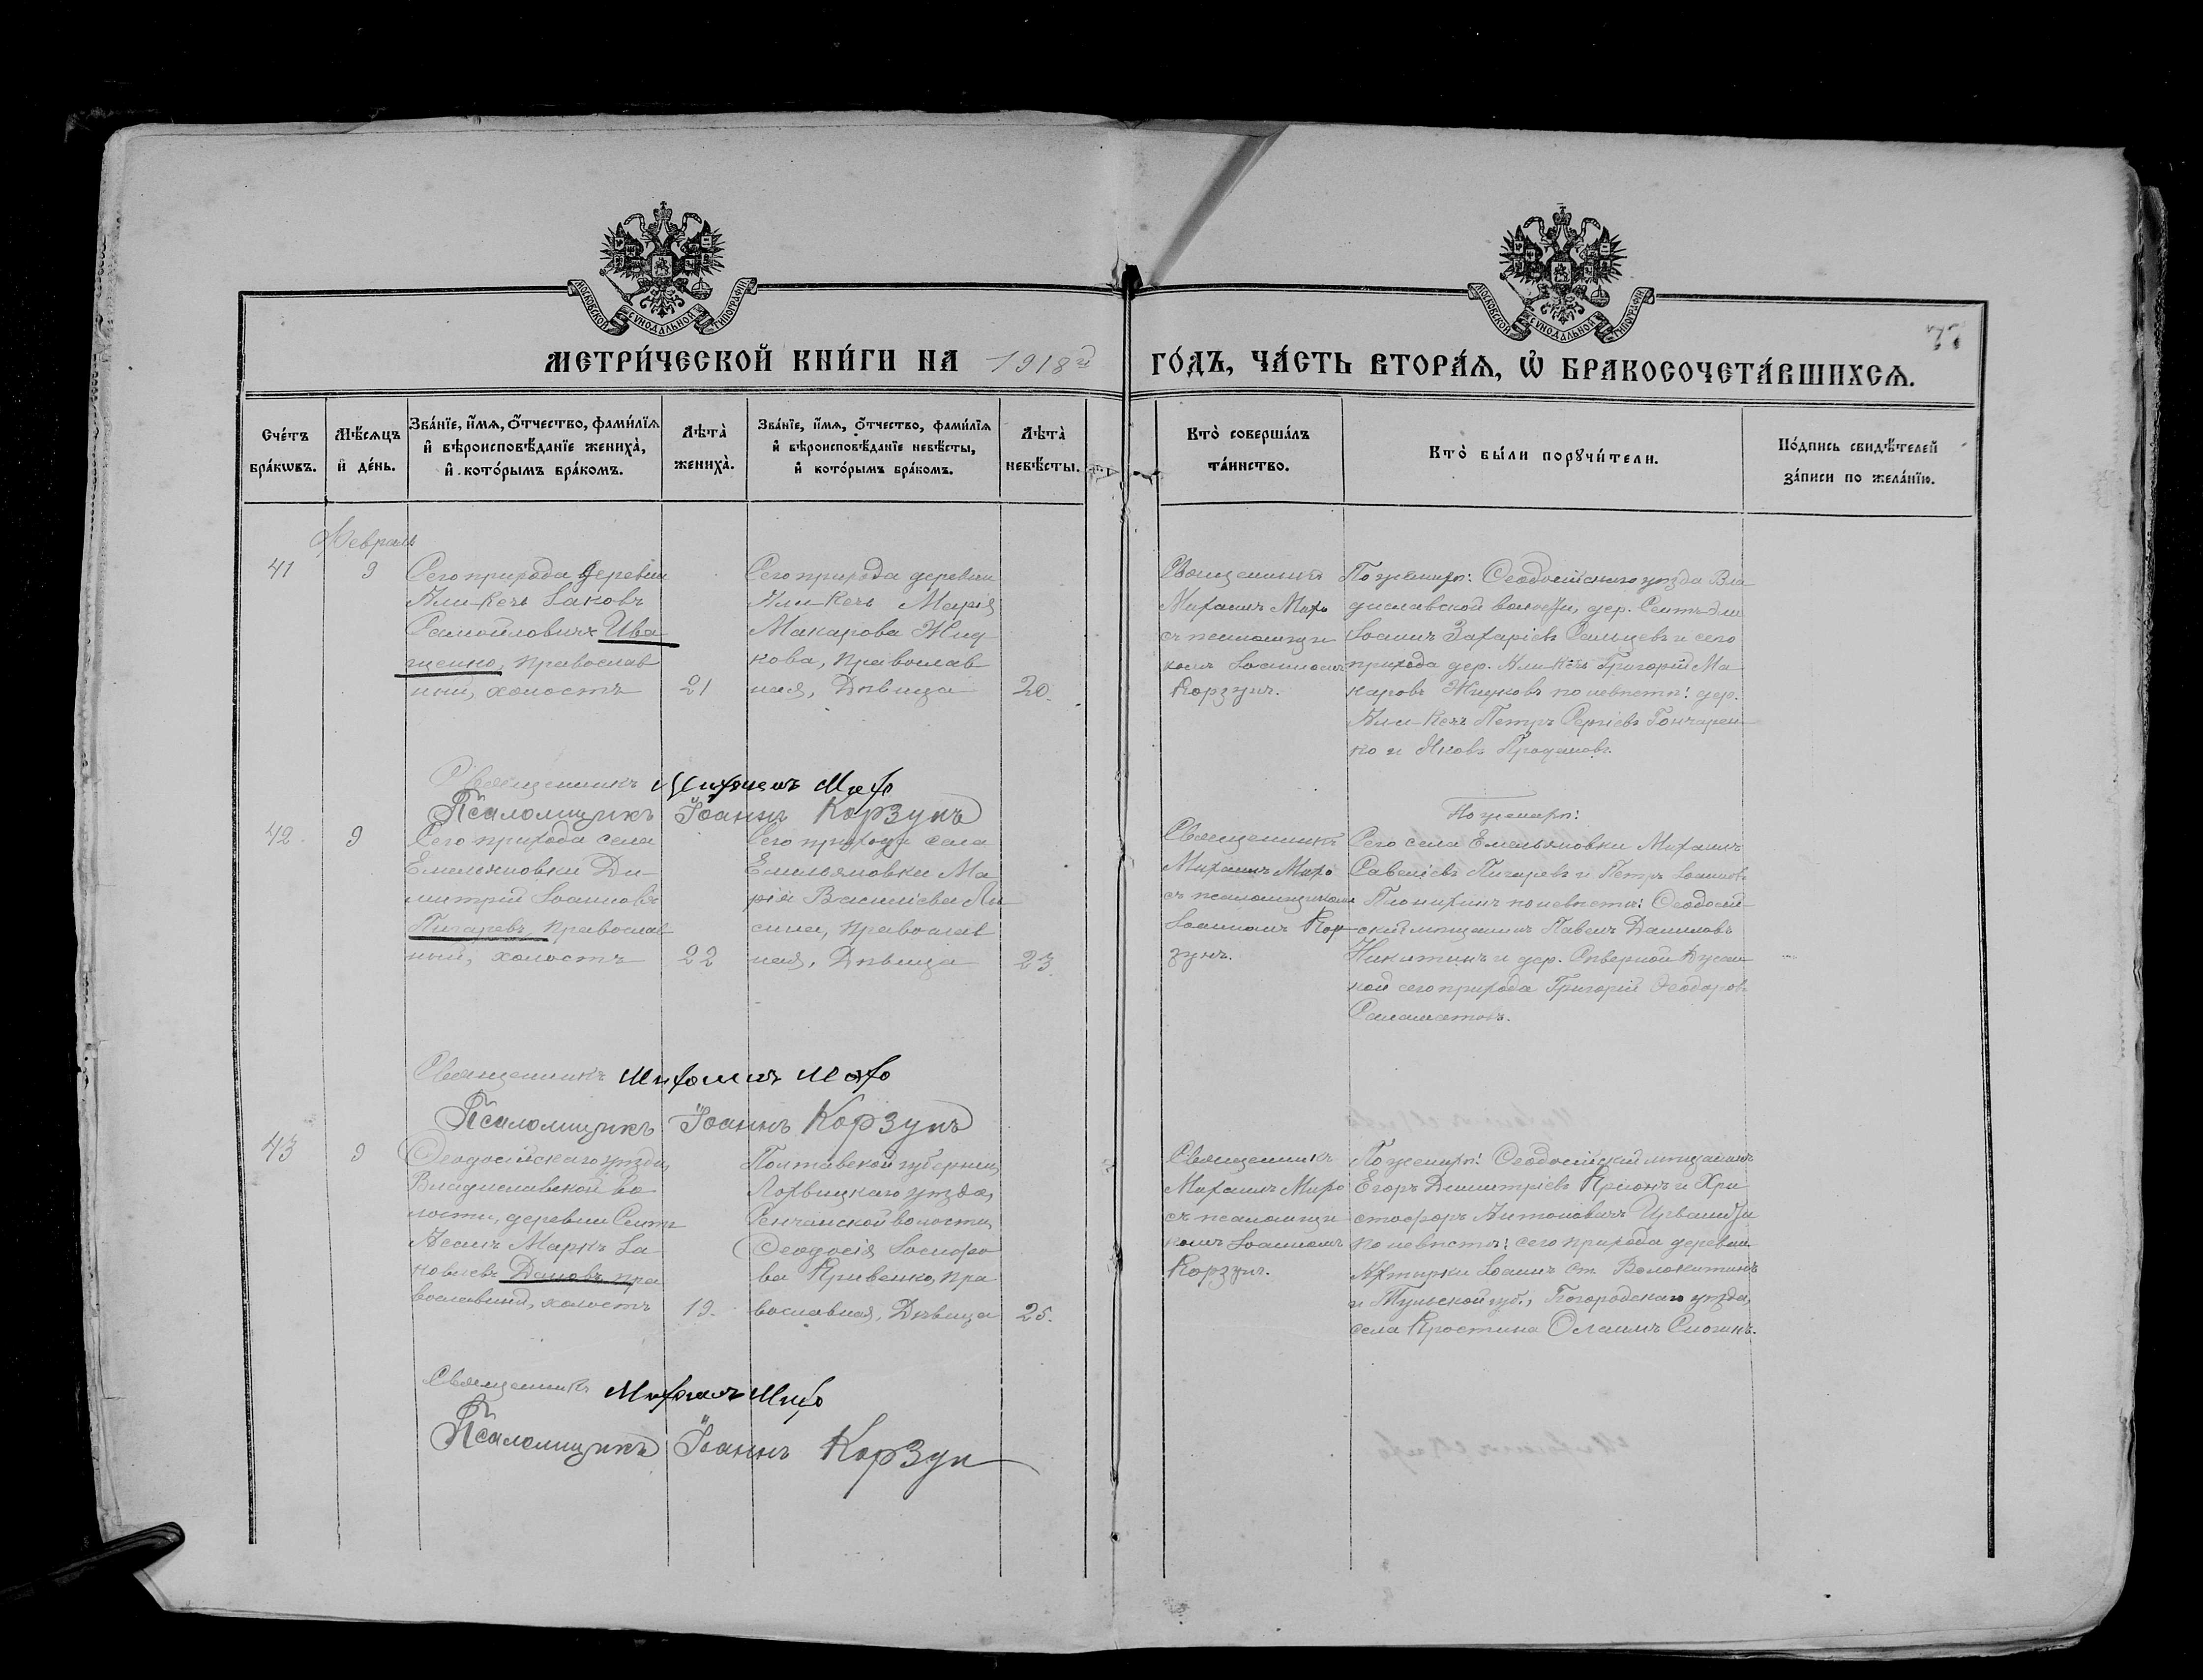 МОСКОВСКОЙ СУНОДАЛЬНОЙ ТИПОГРАФІИ
МОСКОВСКОЙ СУНОДАЛЬНОЙ ТИПОГРАФІИ
МЕТРИ́ЧЕСКОЙ КНИ́ГИ НА 1918й ГО́ДЪ, ЧА́СТЬ ВТОРА́Ѧ, Ѡ҆ БРАКОСОЧЕТА́ВШИХСѦ.
Сче́тъ
бра́кѡвъ.
Мѣ́сѧцъ
и҆ де́нь.
Зва́нїе, и҆́мѧ, ѻ҆́тчество, фами́лїѧ
и҆ вѣроисповѣ́данїе жениха̀,
и҆ кото́рымъ бра́комъ.
Лѣта̀
жениха̀.
Зва́нїе, и҆́мѧ, ѻ҆́тчество, фами́лїѧ
и҆ вѣроисповѣ́данїе невѣ́сты,
и҆ кото́рымъ бра́комъ.
Лѣта̀
невѣ́сты.
Кто̀ соверша́лъ
та́инство.
Кто̀ бы́ли порꙋчи́тели.
По́дпись свидѣ́телей
за́писи по жела́нїю.
Февраль
41
9
Сего прихода деревни
Али-Кечь Іаковъ
Самойловичъ Ива
щенко, православ
ный, холостъ
21
Сего прихода деревни
Али-Кечь Марія
Макарова Жид
кова, православ
ная, Дѣвица
20.
Священникъ
Михаилъ Михо
съ псаломщи
комъ Іоанномъ
Корзунъ.
По женихѣ: Ѳеодосійскаго уѣзда Вла
диславской волости, дер. Сеитъ-Эли
Іоаннъ Захаріевъ Сальцевъ и сего
прихода дер. Али-Кечь Григорій Ма
каровъ Жидковъ по невѣстѣ: дер.
Али-Кечь Петръ Сергіевъ Гончарен
ко и Яковъ
Священникъ Михаилъ Михо
Псаломщикъ Іоаннъ Корзунъ
42
9
Сего прихода села
Емельяновки Ди
митрій Іоанновъ
Пичаревъ, православ
ный, холостъ
22
Сего прихода села
Емельяновки Ма
рія Василіева Ли
сина, православ
ная, Дѣвица
23.
Священникъ
Михаилъ Михо
съ псаломщикомъ
Іоанномъ Кор
зунъ.
По женихѣ:
Сего села Емельяновки Михаилъ
Савеліевъ Пичаревъ и Петръ Іоанновъ
по невѣстѣ: Ѳеодосій
скій мѣщанинъ Павелъ Даниловъ
Никитинъ и дер. Сѣверной
сего прихода Григорій Ѳеодоровъ
Саламатовъ.
Священникъ Михаилъ Михо
Псаломщикъ Іоаннъ Корзунъ
43
9
Ѳеодосійскаго уѣзда,
Владиславской во
лости, деревни Сеитъ
Асанъ Маркъ Іа
ковлевъ Дановъ, пра
вославный, холостъ
19.
Полтавской губерніи,
Лохвицкаго уѣзда,
Сенчанской волости,
Ѳеодосія
ва Кривенко, пра
вославная, Дѣвица
25.
Священникъ
Михаилъ Михо
съ псаломщи
комъ Іоанномъ
Корзунъ.
По женихѣ: Ѳеодосійскій мѣщанинъ
Егоръ Димитріевъ и Хри
стофоръ Антоновичъ
по невѣстѣ: сего прихода деревни
Ахтырки Іоаннъ Ст. Волокитинъ
и Тульской губ., Богородскаго уѣзда,
села
Священникъ Михаилъ Михо
Псаломщикъ Іоаннъ Корзун